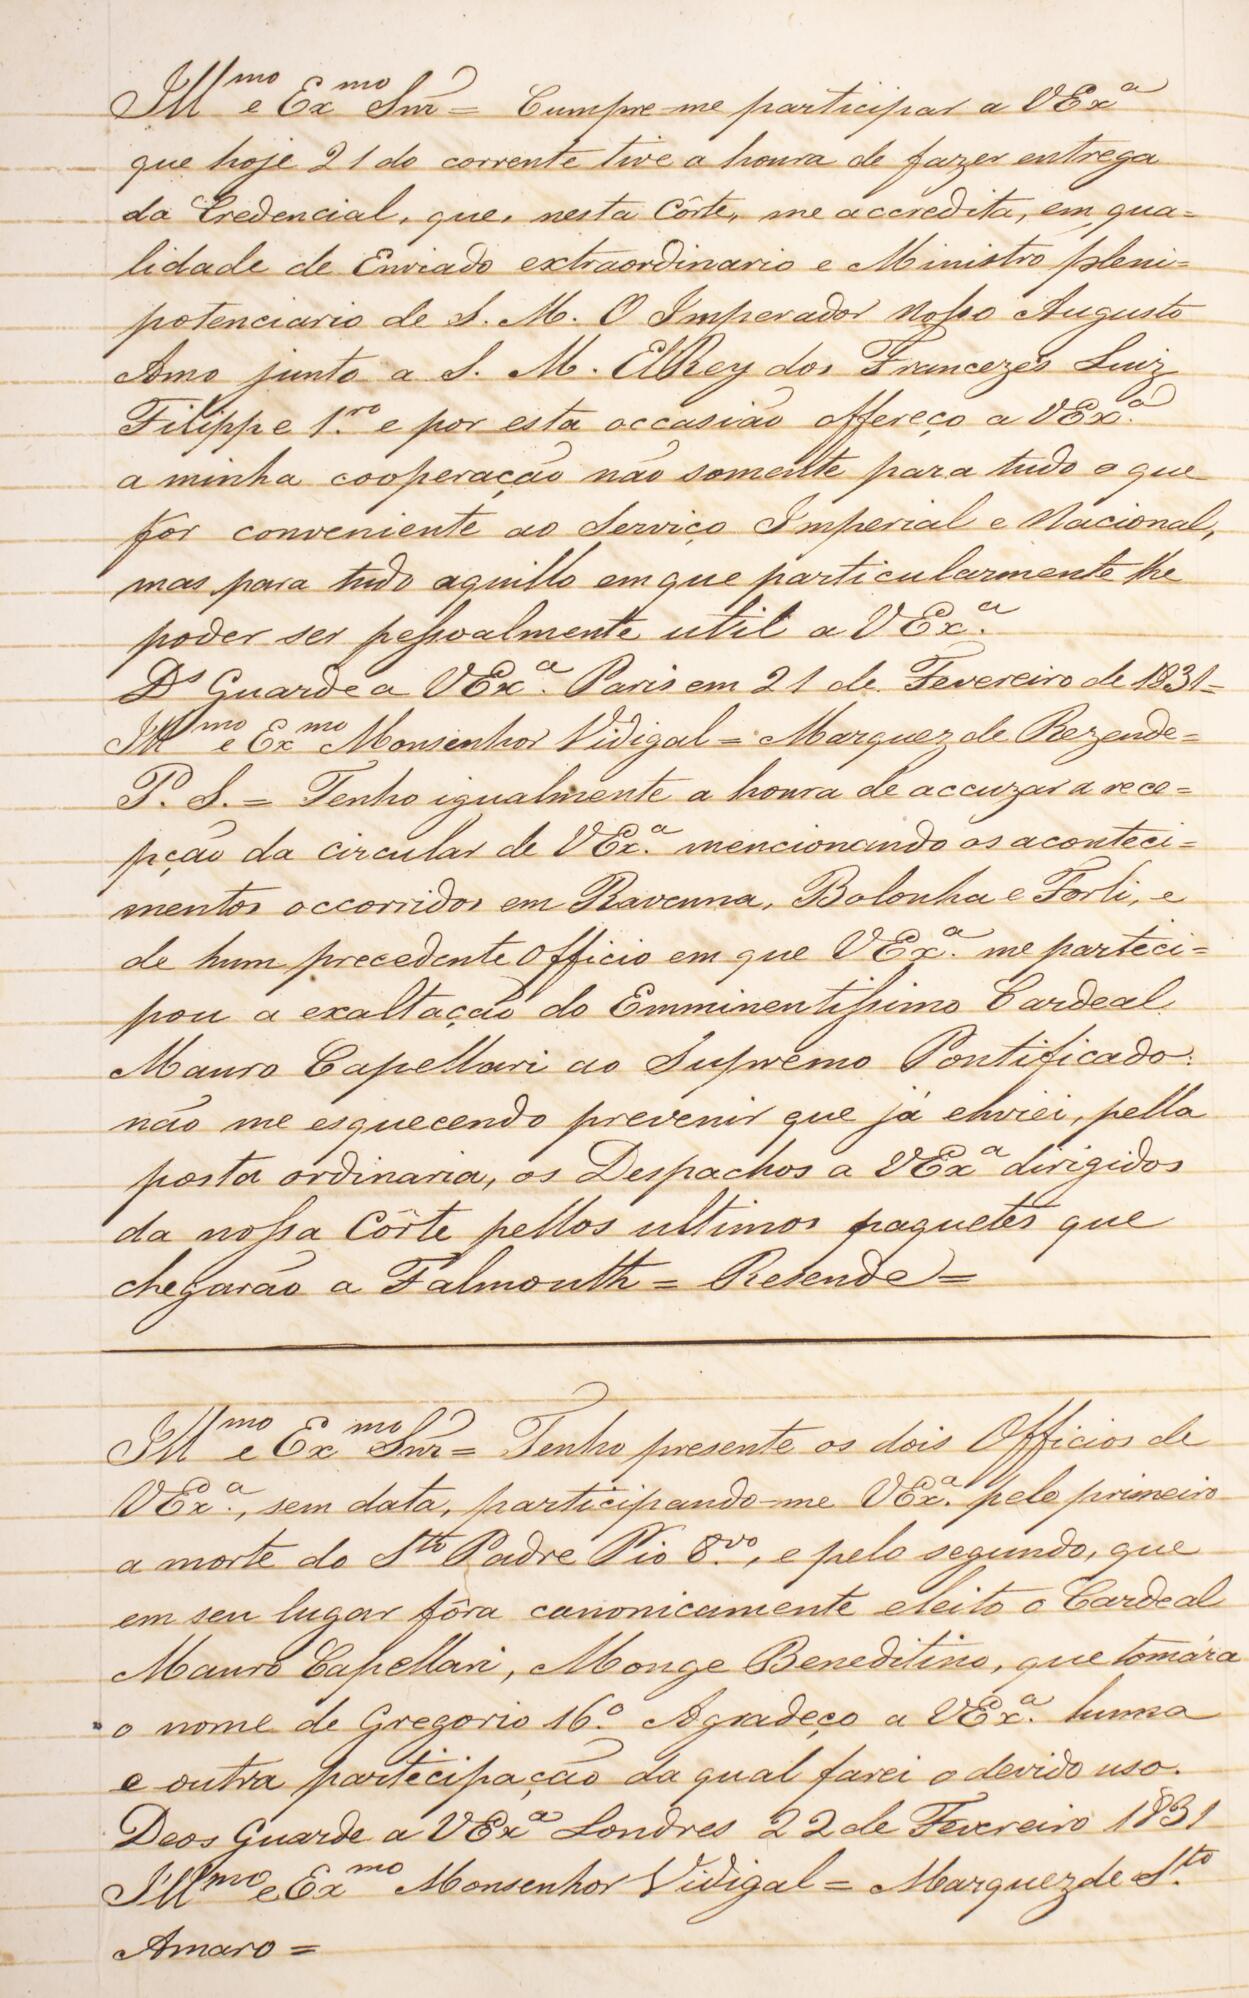 Ill^mo e Ex^mo Snr = Cumpre-me participar a VEx^a
que hoje 21 do corrente tive a honra de fazer entrega
da Credencial, que, nesta Côrte, me accredita, em qua=
lidade de Enviado extraordinario e Ministro pleni=
potenciario de S. M. O Imperador Nosso Augusto
Amo junto a S. M. ElRey dos Francezes Luiz
Filippe 1.^ro e por esta occasião offereço a VEx.^a
a minha cooperação não somente para tudo o que
fôr conveniente ao Serviço Imperial e Nacional,
mas para tudo aquillo em que particularmente lhe
poder ser pessoalmente util a VEx.^a
D^s Guarde a VEx.^a Paris em 21 de Fevereiro de 1831=
Ill^mo e Ex^mo Monsenhor Vidigal = Marquez de Rezende=
P. S. = Tenho igualmente a honra de accuzar a rece=
pção da circular de VEx.^a mencionando os aconteci=
mentos occorridos em Ravenna, Bolonha e Forli, e
de hum precedente Officio em que VEx.^a me parteci=
pou a exaltação do Emminentissimo Cardeal
Mauro Capellari ao Supremo Pontificado:
não me esquecendo prevenir que já enviei, pella
posta ordinaria, os Despachos a VEx^a dirigidos
da nossa Côrte pellos ultimos paquetes que
chegarão a Falmouth = Resende =
Ill^mo e Ex^mo Snr = Tenho presente os dois Officios de
VEx.^a, sem data, participando-me VEx.^a pelo primeiro
a morte do S^to Padre Pio 8.^vo, e pelo segundo, que
em seu lugar fôra canonicamente eleito o Cardeal
Mauro Capellari, Monge Beneditino, que tomára
o nome de Gregorio 16.^o Agradeço a VEx.^a huma
e outra partecipação da qual farei o devido uso.
Deos Guarde a VEx^a Londres 22 de Fevereiro 1831
Ill^mo e Ex^mo Monsenhor Vidigal = Marquez de S.^to
Amaro =